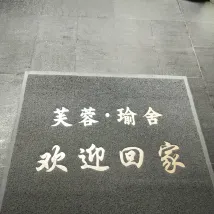 芙蓉·瑜舍
欢迎回家